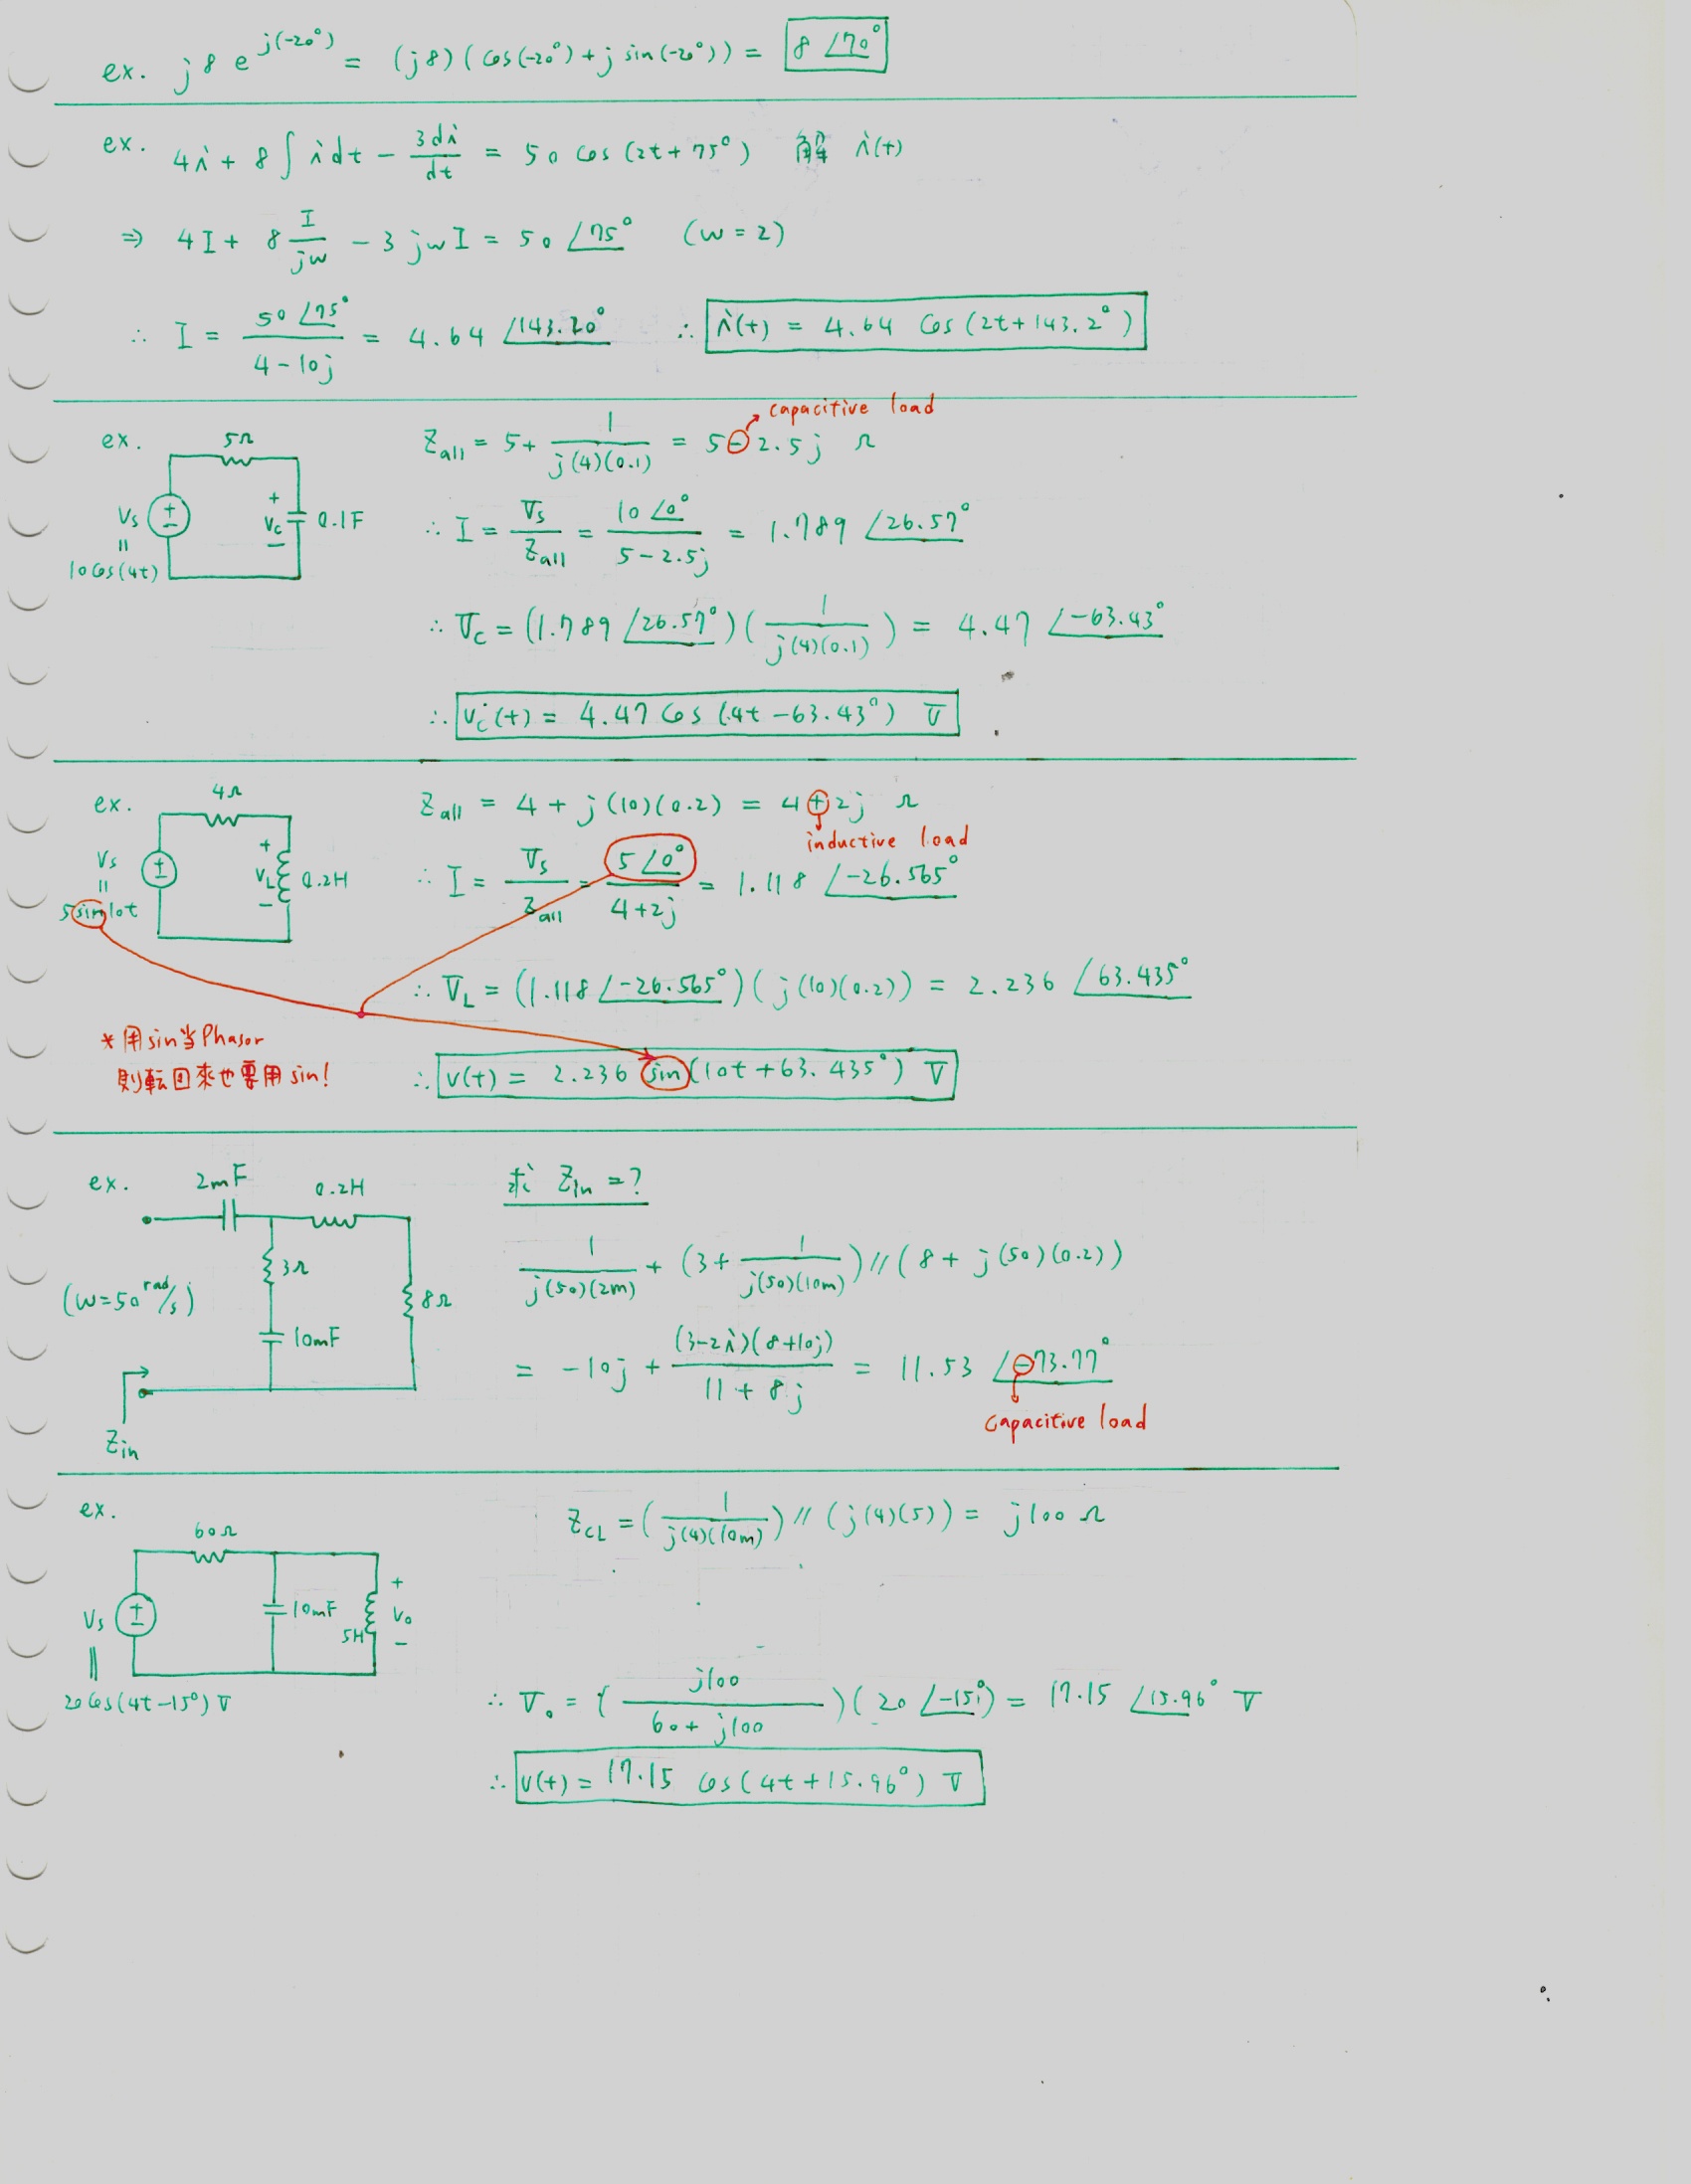 ex. j8 e^{j(-20°)} = (j8)(cos(-20°)+j sin(-20°)) = 8 ∠70°
ex. 4i + 8∫idt - 3di/dt = 50 cos(2t+75°) 解 i(t)
⇒ 4I + 8 I/jw - 3jwI = 50 ∠75° (w=2)
∴ I = 50∠75° / 4-10j = 4.64 ∠143.20° ∴ i(t) = 4.64 cos(2t+143.2°)
ex.
5Ω
Vs
||
10cos(4t)
+
Vc
-
0.1F
capacitive load
Zall = 5 + 1/j(4)(0.1) = 5-2.5j Ω
∴ I = Vs/Zall = 10∠0° / 5-2.5j = 1.789 ∠26.57°
∴ Vc = (1.789 ∠26.57°)(1/j(4)(0.1)) = 4.47 ∠-63.43°
∴ vc(t) = 4.47 cos(4t-63.43°) V
ex.
4Ω
Vs
||
5sin10t
+
VL
-
0.2H
Zall = 4 + j(10)(0.2) = 4+2j Ω
inductive load
∴ I = Vs/Zall = 5∠0° / 4+2j = 1.118 ∠-26.565°
∴ VL = (1.118 ∠-26.565°)(j(10)(0.2)) = 2.236 ∠63.435°
*用sin当Phasor
則転回來也要用sin!
∴ v(t) = 2.236 sin(10t+63.435°) V
ex.
2mF
0.2H
3Ω
(w=50 rad/s)
8Ω
10mF
Zin
求 Zin = ?
1/j(50)(2m) + (3 + 1/j(50)(10m)) // (8 + j(50)(0.2))
= -10j + (3-2i)(8+10j) / 11+8j = 11.53 ∠-73.77°
capacitive load
ex.
60Ω
Vs
||
20cos(4t-15°)V
10mF
5H
+
Vo
-
ZCL = (1/j(4)(10m)) // (j(4)(5)) = j100 Ω
∴ Vo = (j100 / 60+j100)(20 ∠-15°) = 17.15 ∠15.96° V
∴ v(t) = 17.15 cos(4t+15.96°) V